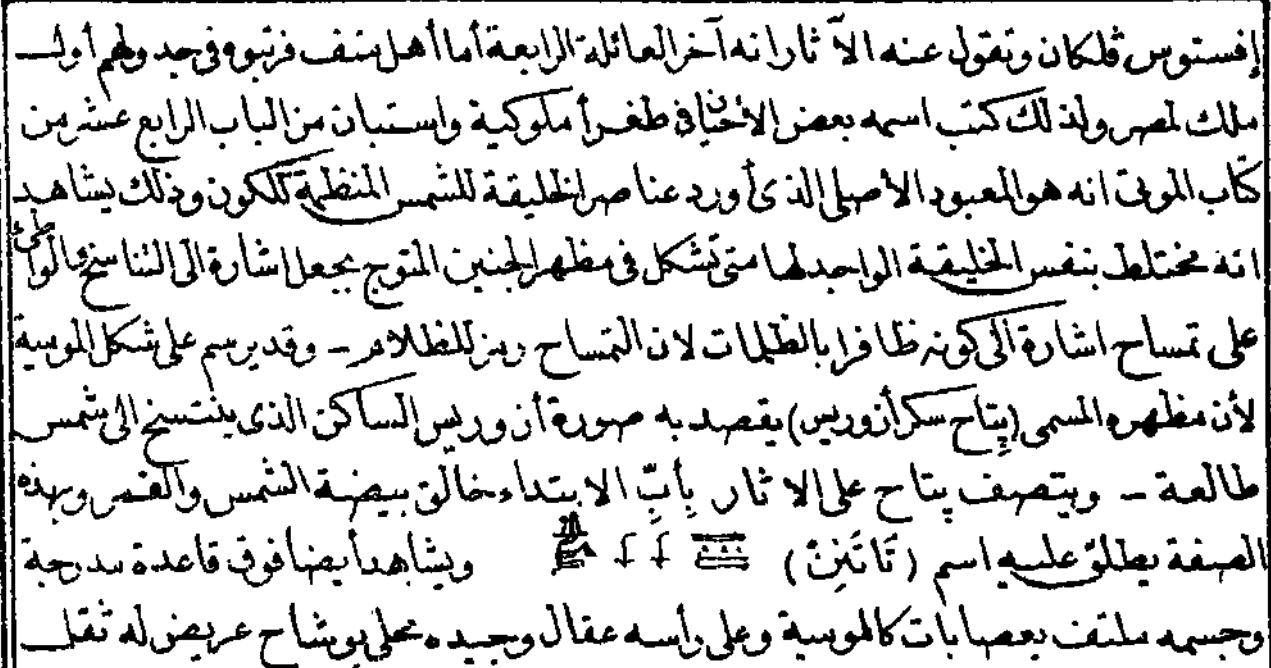 إفستوس فلكان وتقول عنه الآثار انه آخر العائلة الرابعة أما أهل منف فرتبوه في جدولهم أول
ملك لمصر ولذلك كتب اسمه بعض الأحيان في طغرأ ملوكية واستبان من الباب الرابع عشر من
كتاب الموتى انه هو المعبود الأصلي الذي أورد عناصر الخليقة للشمس المنظمة للكون وذلك يشاهد
انه مختلط بنفس الخليقة الواجد لها متى تشكل في مظهر الجنين المتوج بجعل اشارة الى التناسخ والواطئ
على تمساح اشارة الى كونه ظافرا بالظلمات لان التمساح رمز للظلام - وقد يرسم على شكل الموسية
لأن مظهره المسمى (پتاح سكر أزوريس) يقصد به صورة أزوريس الساكن الذي ينتسخ الى شمس
طالعة - ويتصف پتاح على الاثار بِأَبِّ الابتداء خالق بيضة الشمس والقمر وبهذه
الصفة يطلق عليه اسم (تَاتَنِنْ) ويشاهد أيضا فوق قاعدة مدرجة
وجسمه ملتف بعصابات كالموسية وعلى رأسه عقال وجيده محلى بوشاح عريض له ثقل